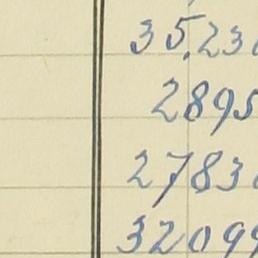 35.230
2895
27830
32099